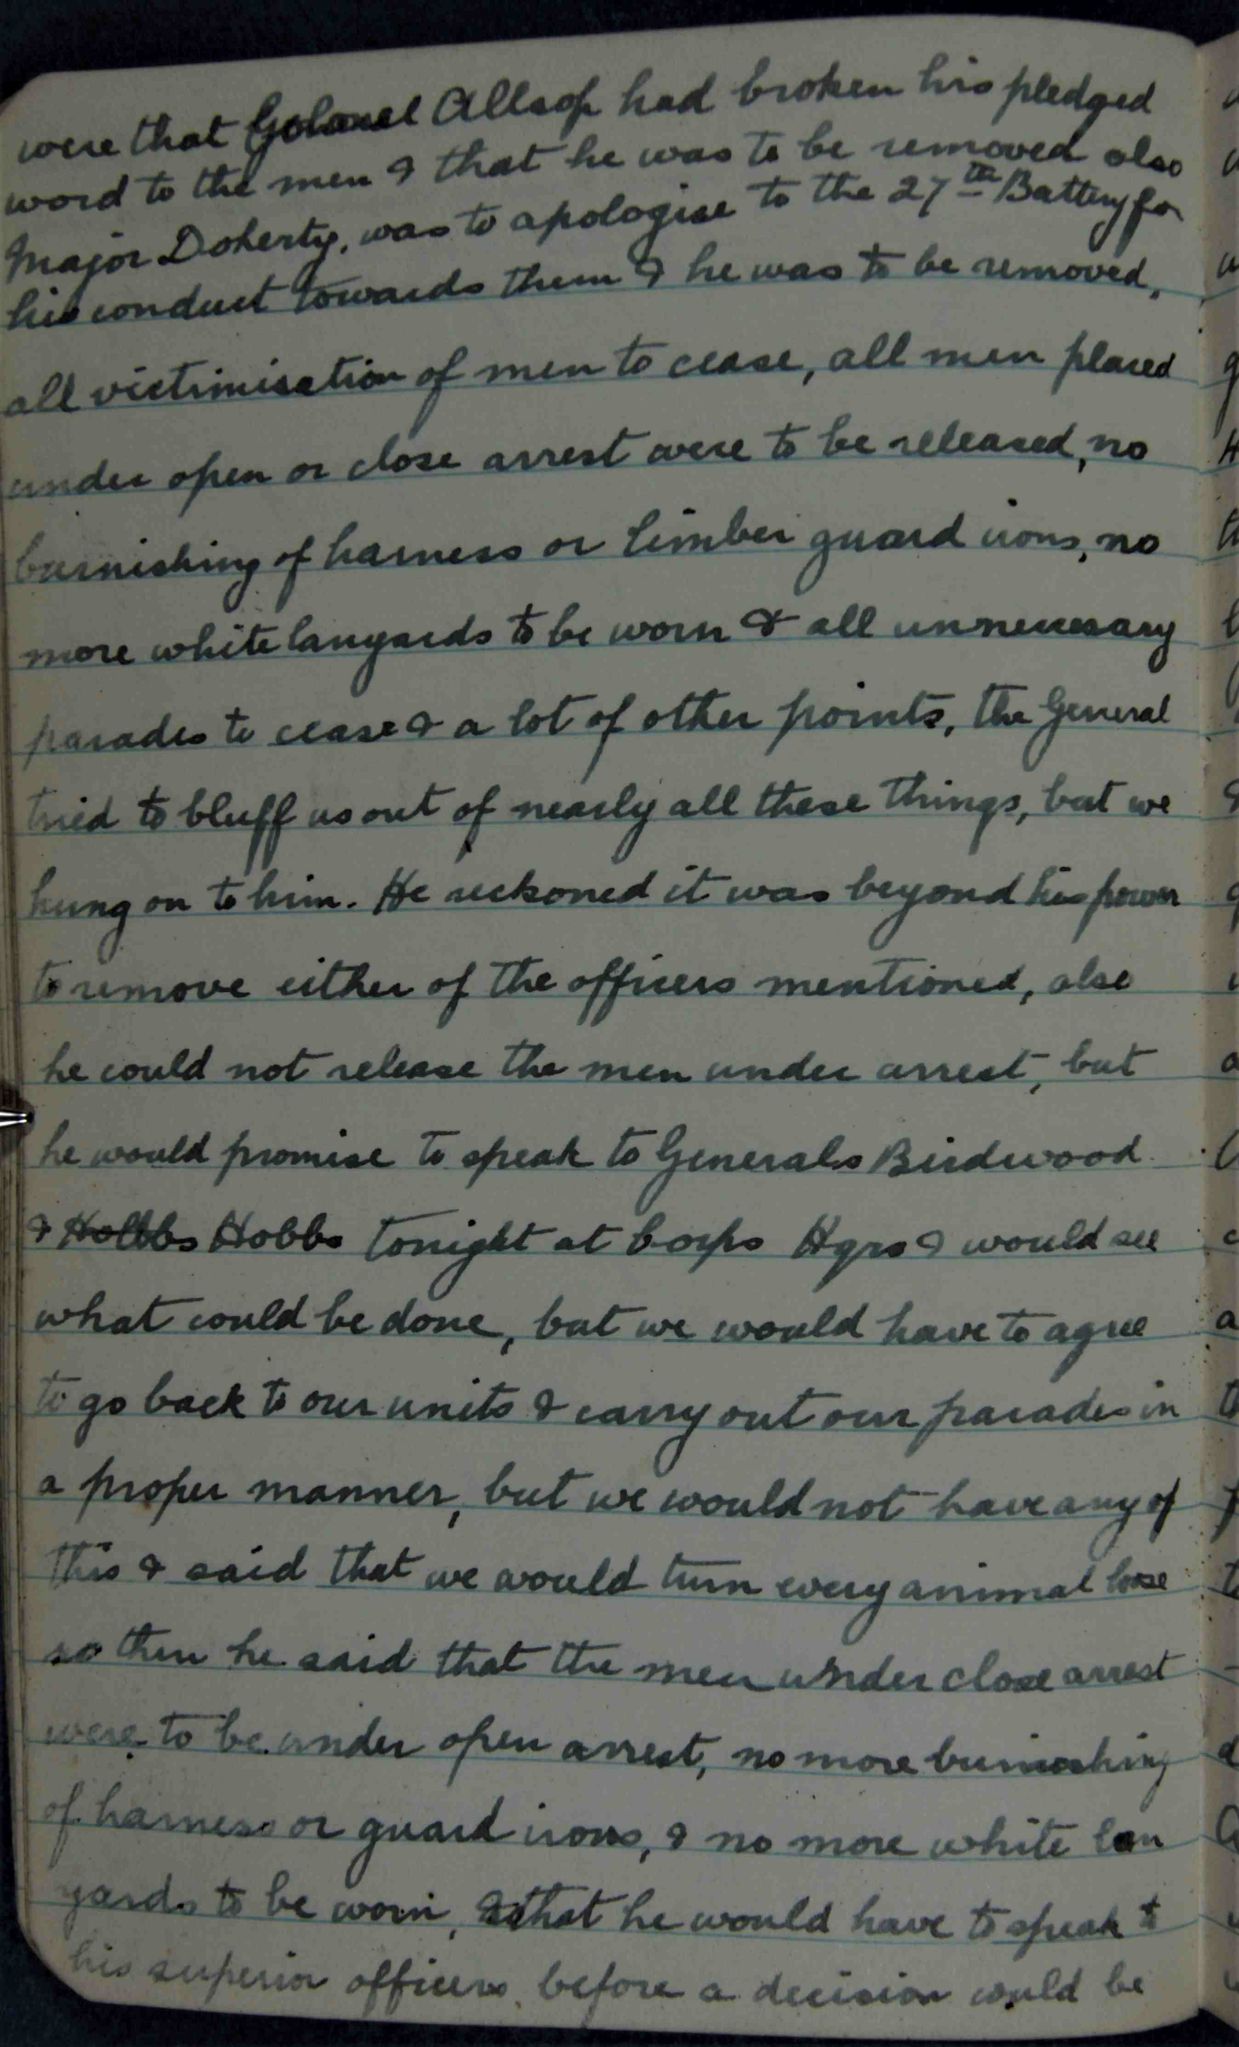 were that Colonel Allsop had broken his pledged
word to the men & that he was to be removed also
Major Doherty, was to apologise to the 27th Battery for
his conduct towards them & he was to be removed,
all victimisation of men to cease, all men placed
under open or close arrest were to be released, no
burnishing of harness or limber guard irons, no
more white lanyards to be worn & all unnecessary
parades to cease & a lot of other points, the General
tried to bluff us out of nearly all these things, but we
hung on to him. He reckoned it was beyond his power
to remove either of the officers mentioned, also
he could not release the men under arrest, but
he would promise to speak to Generals Birdwood
& Holbbs Hobbs tonight at Corps Hqrs & would see
what could be done, but we would have to agree
to go back to our units & carry out our parades in
a proper manner, but we would not have any of
this & said that we would turn every animal loose
so then he said that the men under close arrest
were to be under open arrest, no more burnishing
of harness or guard irons, & no more white lan
yards to be worn, & that he would have to speak to
his superior officers before a decision would be